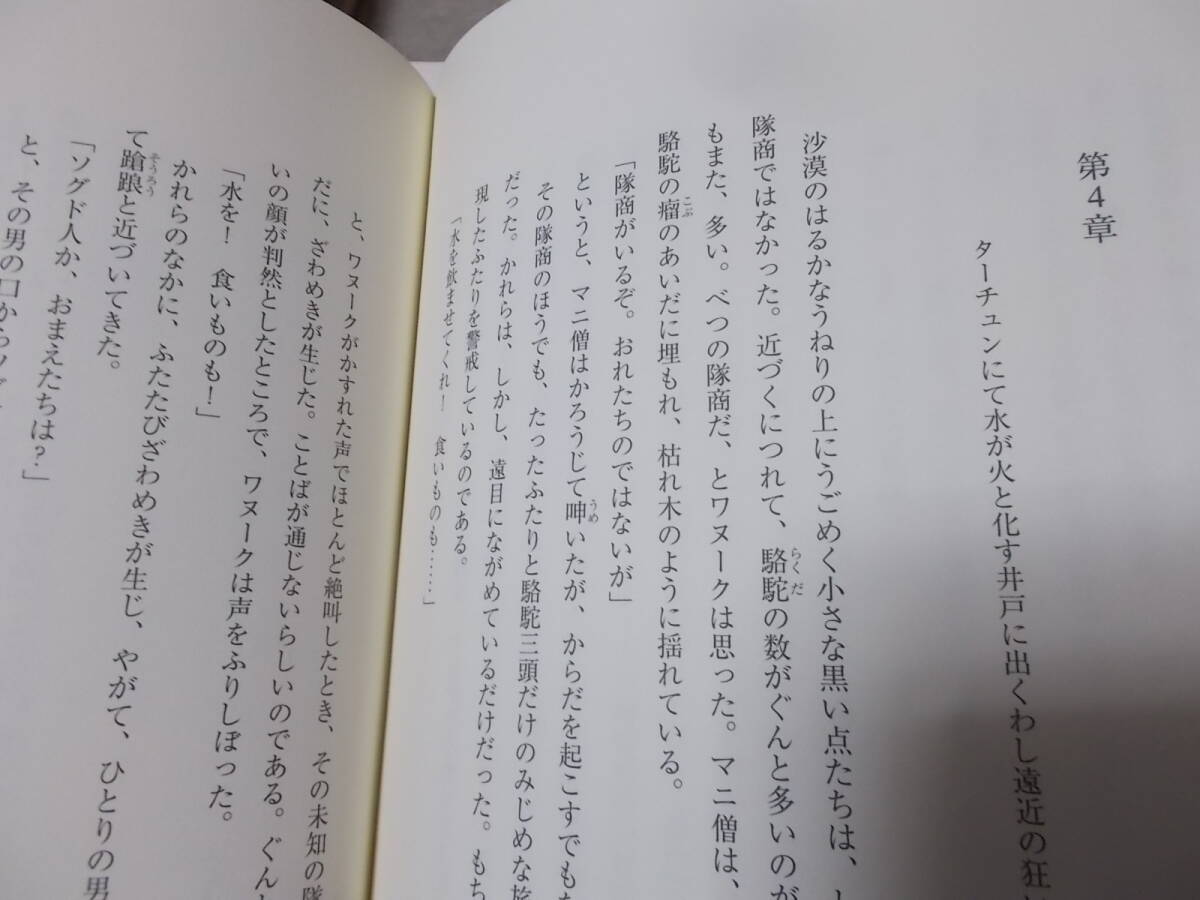 第4章
ターチュンにて水が火と化す井戸に出くわし遠近の狂
沙漠のはるかなうねりの上にうごめく小さな黒い点たちは、
隊商ではなかった。近づくにつれて、駱駝の数がぐんと多いのが
もまた、多い。べつの隊商だ、とワヌークは思った。マニ僧は、
駱駝の瘤のあいだに埋もれ、枯れ木のように揺れている。
「隊商がいるぞ。おれたちのではないが」
というと、マニ僧はかろうじて呻いたが、からだを起こすでも
その隊商のほうでも、たったふたりと駱駝三頭だけのみじめな旅
だった。かれらは、しかし、遠目にながめているだけだった。もち
現したふたりを警戒しているのである。
「水を飲ませてくれ！　食いものも……」
と、ワヌークがかすれた声でほとんど絶叫したとき、その未知の隊
だに、ざわめきが生じた。ことばが通じないらしいのである。ぐん
いの顔が判然としたところで、ワヌークは声をふりしぼった。
「水を！　食いものも！」
かれらのなかに、ふたたびざわめきが生じ、やがて、ひとりの男
て蹌踉と近づいてきた。
「ソグド人か、おまえたちは？」
と、その男の口からソグ